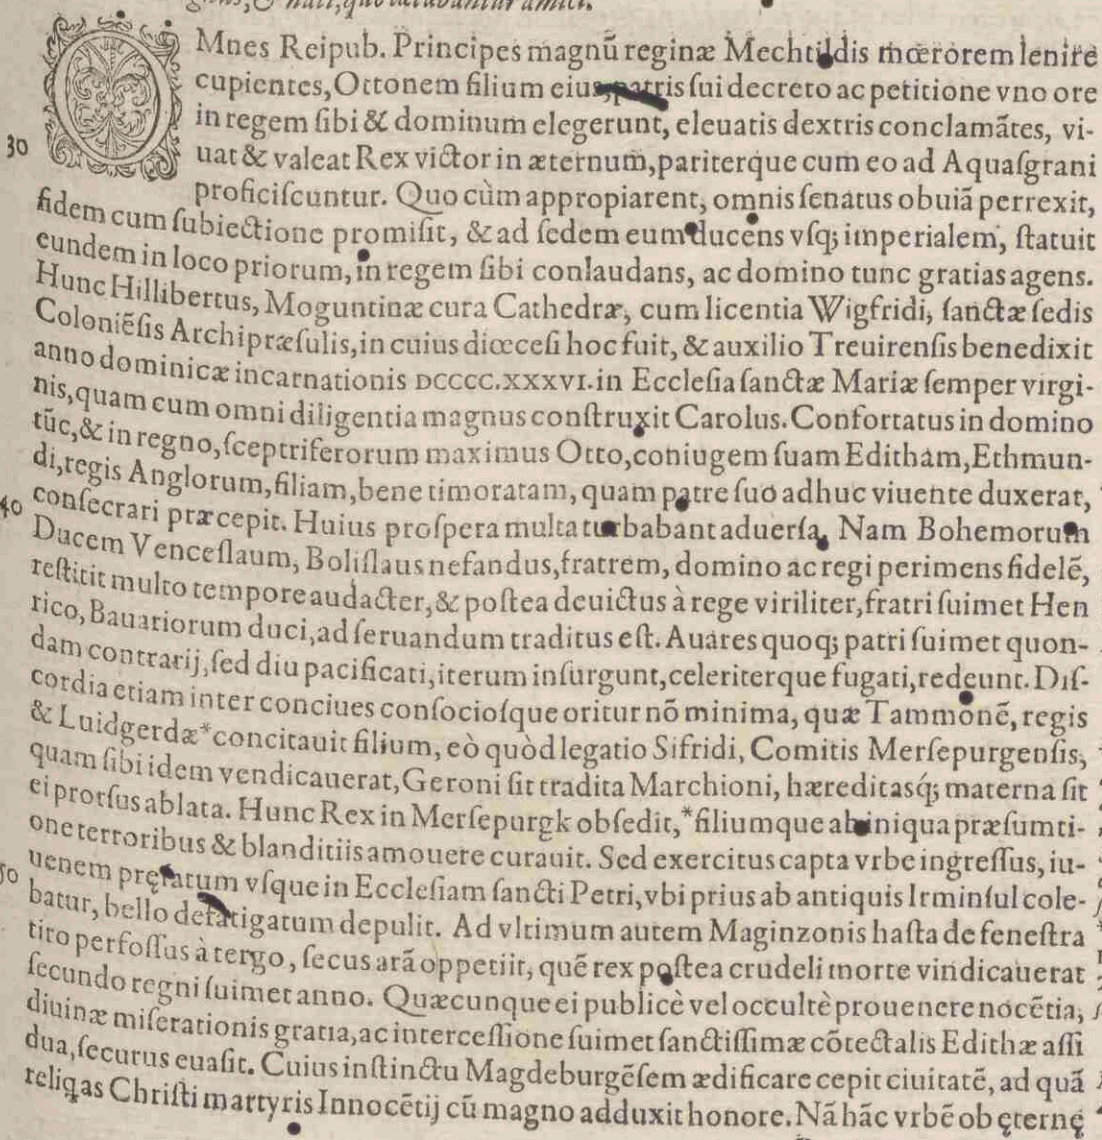 OMnes Reipub. Principes magnū reginæ Mechtildis mœrorem lenire
cupientes, Ottonem filium eius, patris ſui decreto ac petitione vno ore
in regem ſibi & dominum elegerunt, eleuatis dextris conclamātes, vi-
30 uat & valeat Rex victor in æternum, pariterque cum eo ad Aquaſgrani
proficiſcuntur. Quo cùm appropiarent, omnis ſenatus obuiā perrexit,
fidem cum ſubiectione promiſit, & ad ſedem eum ducens vſq; imperialem, ſtatuit
eundem in loco priorum, in regem ſibi conlaudans, ac domino tunc gratias agens.
Hunc Hillibertus, Moguntinæ cura Cathedræ, cum licentia Wigfridi, ſanctæ ſedis
Coloniēſis Archipræſulis, in cuius diœceſi hoc fuit, & auxilio Treuirenſis benedixit
anno dominicæ incarnationis DCCCC.XXXVI. in Eccleſia ſanctæ Mariæ ſemper virgi-
nis, quam cum omni diligentia magnus conſtruxit Carolus. Confortatus in domino
tūc, & in regno, ſceptriferorum maximus Otto, coniugem ſuam Editham, Ethmun-
di, regis Anglorum, filiam, bene timoratam, quam patre ſuo adhuc viuente duxerat,
40 conſecrari præcepit. Huius proſpera multa turbabant aduerſa. Nam Bohemorum
Ducem Venceſlaum, Boliſlaus nefandus, fratrem, domino ac regi perimens fidelē,
reſtitit multo tempore audacter, & poſtea deuictus à rege viriliter, fratri ſuimet Hen
rico, Bauariorum duci, ad ſeruandum traditus eſt. Auares quoq; patri ſuimet quon-
dam contrarij, ſed diu pacificati, iterum inſurgunt, celeriterque fugati, redeunt. Diſ-
cordia etiam inter conciues conſocioſque oritur nō minima, quæ Tammonē, regis
& Luidgerdæ* concitauit filium, eò quòd legatio Sifridi, Comitis Merſepurgenſis,
quam ſibi idem vendicauerat, Geroni ſit tradita Marchioni, hæreditasq́; materna ſit
ei prorſus ablata. Hunc Rex in Merſepurgk obſedit, *filiumque ab iniqua præſumti-
one terroribus & blanditiis amouere curauit. Sed exercitus capta vrbe ingreſſus, iu-
50 uenem pręfatum vſque in Eccleſiam ſancti Petri, vbi prius ab antiquis Irminſul cole-
batur, bello defatigatum depulit. Ad vltimum autem Maginzonis haſta de feneſtra
tiro perfoſſus à tergo, ſecus arā oppetiit, quē rex poſtea crudeli morte vindicauerat
ſecundo regni ſuimet anno. Quæcunque ei publicè vel occultè prouenere nocētia,
diuinæ miſerationis gratia, ac interceſſione ſuimet ſanctiſſimæ cōtectalis Edithæ aſſi
dua, ſecurus euaſit. Cuius inſtinctu Magdeburgēſem ædificare cepit ciuitatē, ad quā
reliqas Chriſti martyris Innocētij cū magno adduxit honore. Nā hāc vrbē ob ęternę